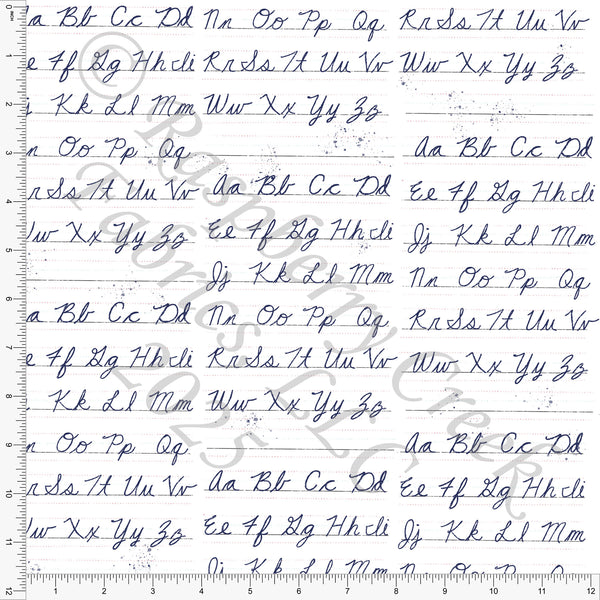 a Bb Cc Dd Nn Oo Pp Qq Rr Ss Tt Uu Vv
e Ff Gg Hh Ii Rr Ss Tt Uu Vv Ww Xx Yy Zz
Kk Ll Mm Ww Xx Yy Zz
n Oo Pp Qq Aa Bb Cc Dd
r Ss Tt Uu Vv Aa Bb Cc Dd Ee Ff Gg Hh Ii
Ww Xx Yy Zz Ee Ff Gg Hh Ii Jj Kk Ll Mm
Jj Kk Ll Mm Nn Oo Pp Qq
a Bb Cc Dd Nn Oo Pp Qq Rr Ss Tt Uu Vv
e Ff Gg Hh Ii Rr Ss Tt Uu Vv Ww Xx Yy Zz
Kk Ll Mm Ww Xx Yy Zz
n Oo Pp Qq Aa Bb Cc Dd
r Ss Tt Uu Vv Aa Bb Cc Dd Ee Ff Gg Hh Ii
Ww Xx Yy Zz Ee Ff Gg Hh Ii Jj Kk Ll Mm
© Raspberry Creek
Fabrics, LLC
2025
0 INCH 1 2 3 4 5 6 7 8 9 10 11 12
1 2 3 4 5 6 7 8 9 10 11 12